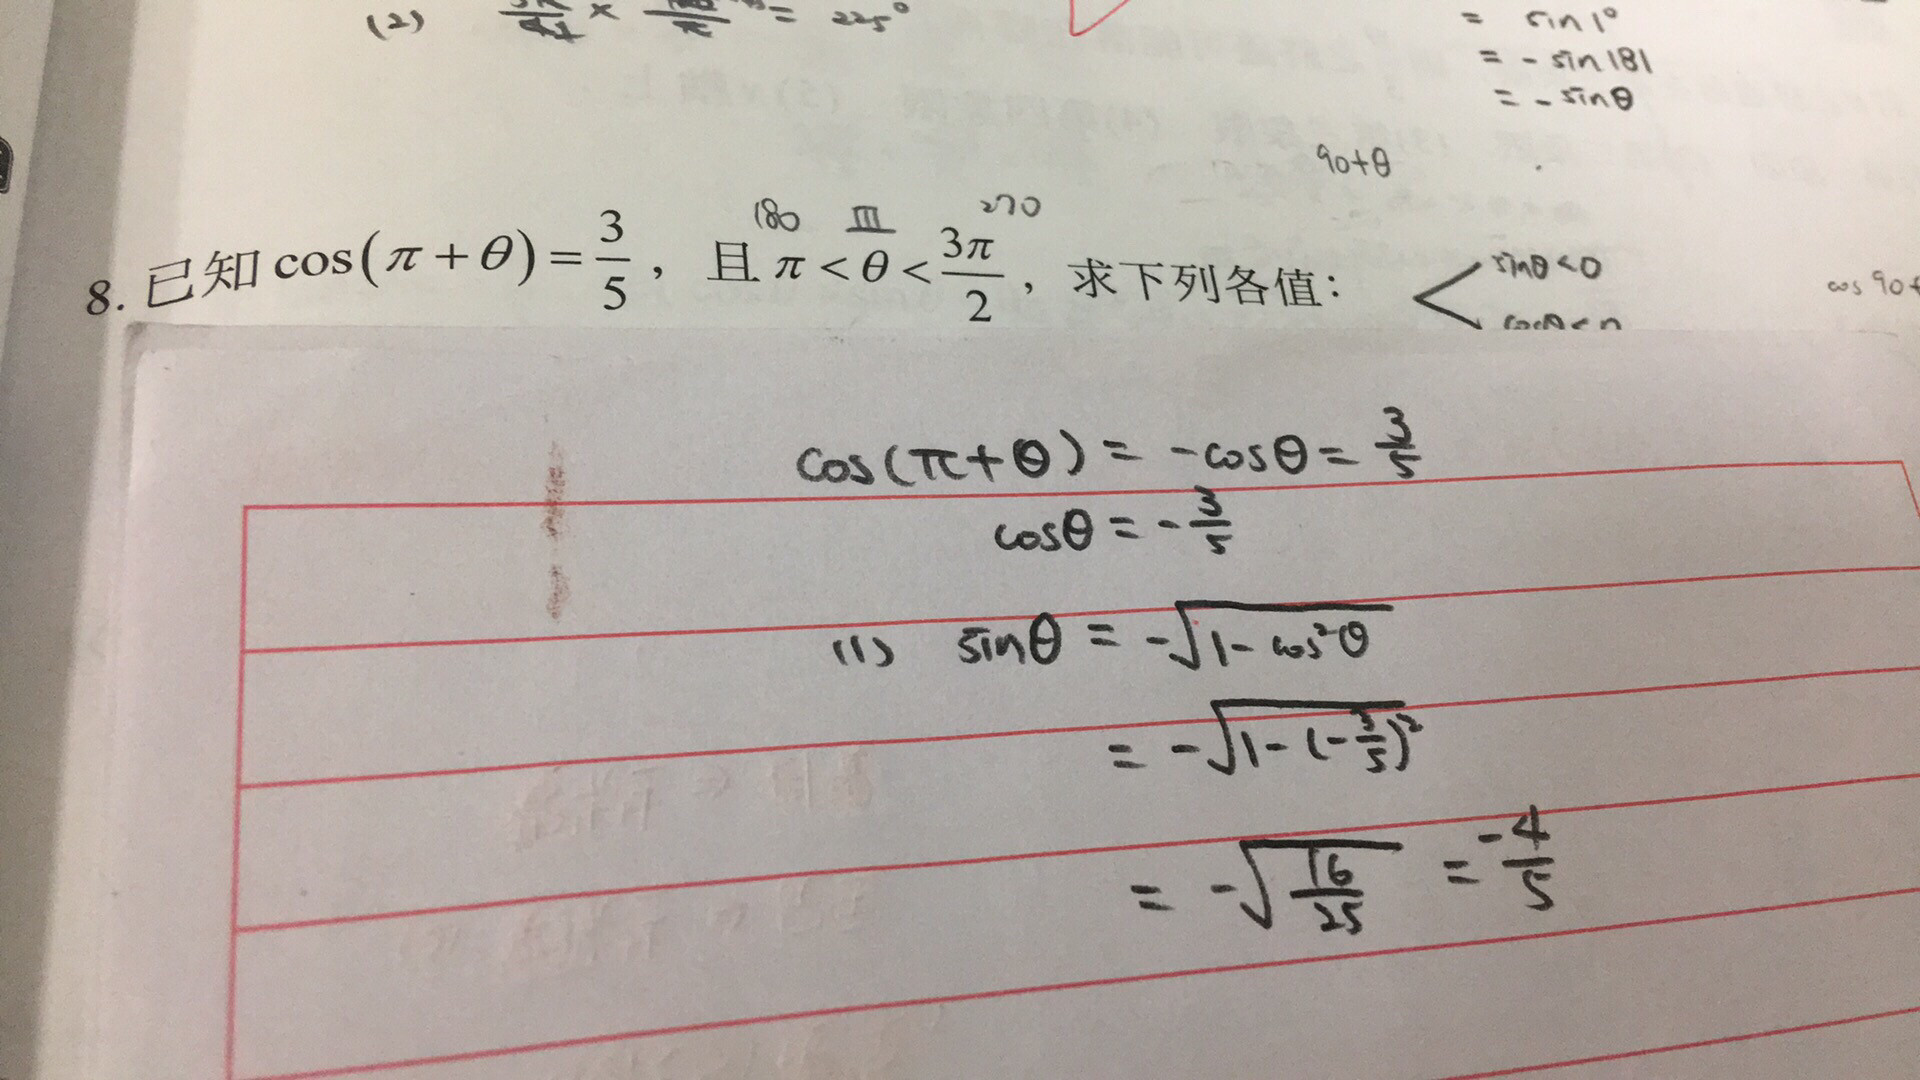 (2) × = 225°
= sin1°
= - sin181
= - sinθ
90+θ
180 Ⅲ 270
8. 已知cos(π+θ)=3/5，且π<θ<3π/2，求下列各值：
sinθ<0
cos 90+
cos(π+θ) = -cosθ = 3/5
cosθ = -3/5
(1) sinθ = -√(1-cos²θ)
= -√(1-(-3/5)²)
= -√(16/25) = -4/5